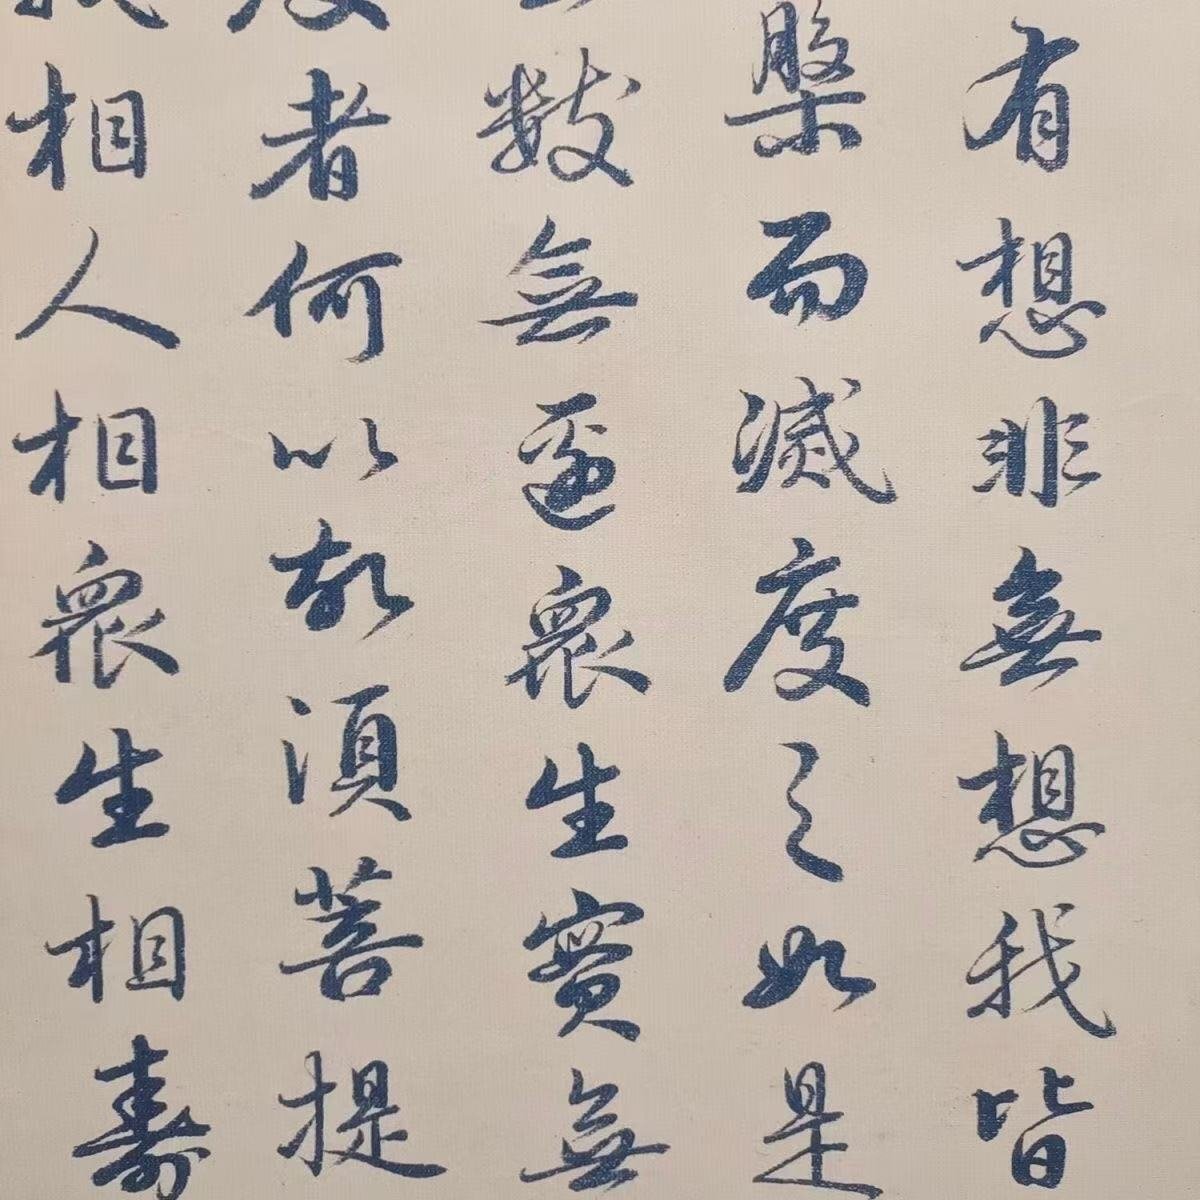 有想非無想我皆
槃而滅度之如是
數無邊衆生實無
度者何以故須菩提
我相人相衆生相壽